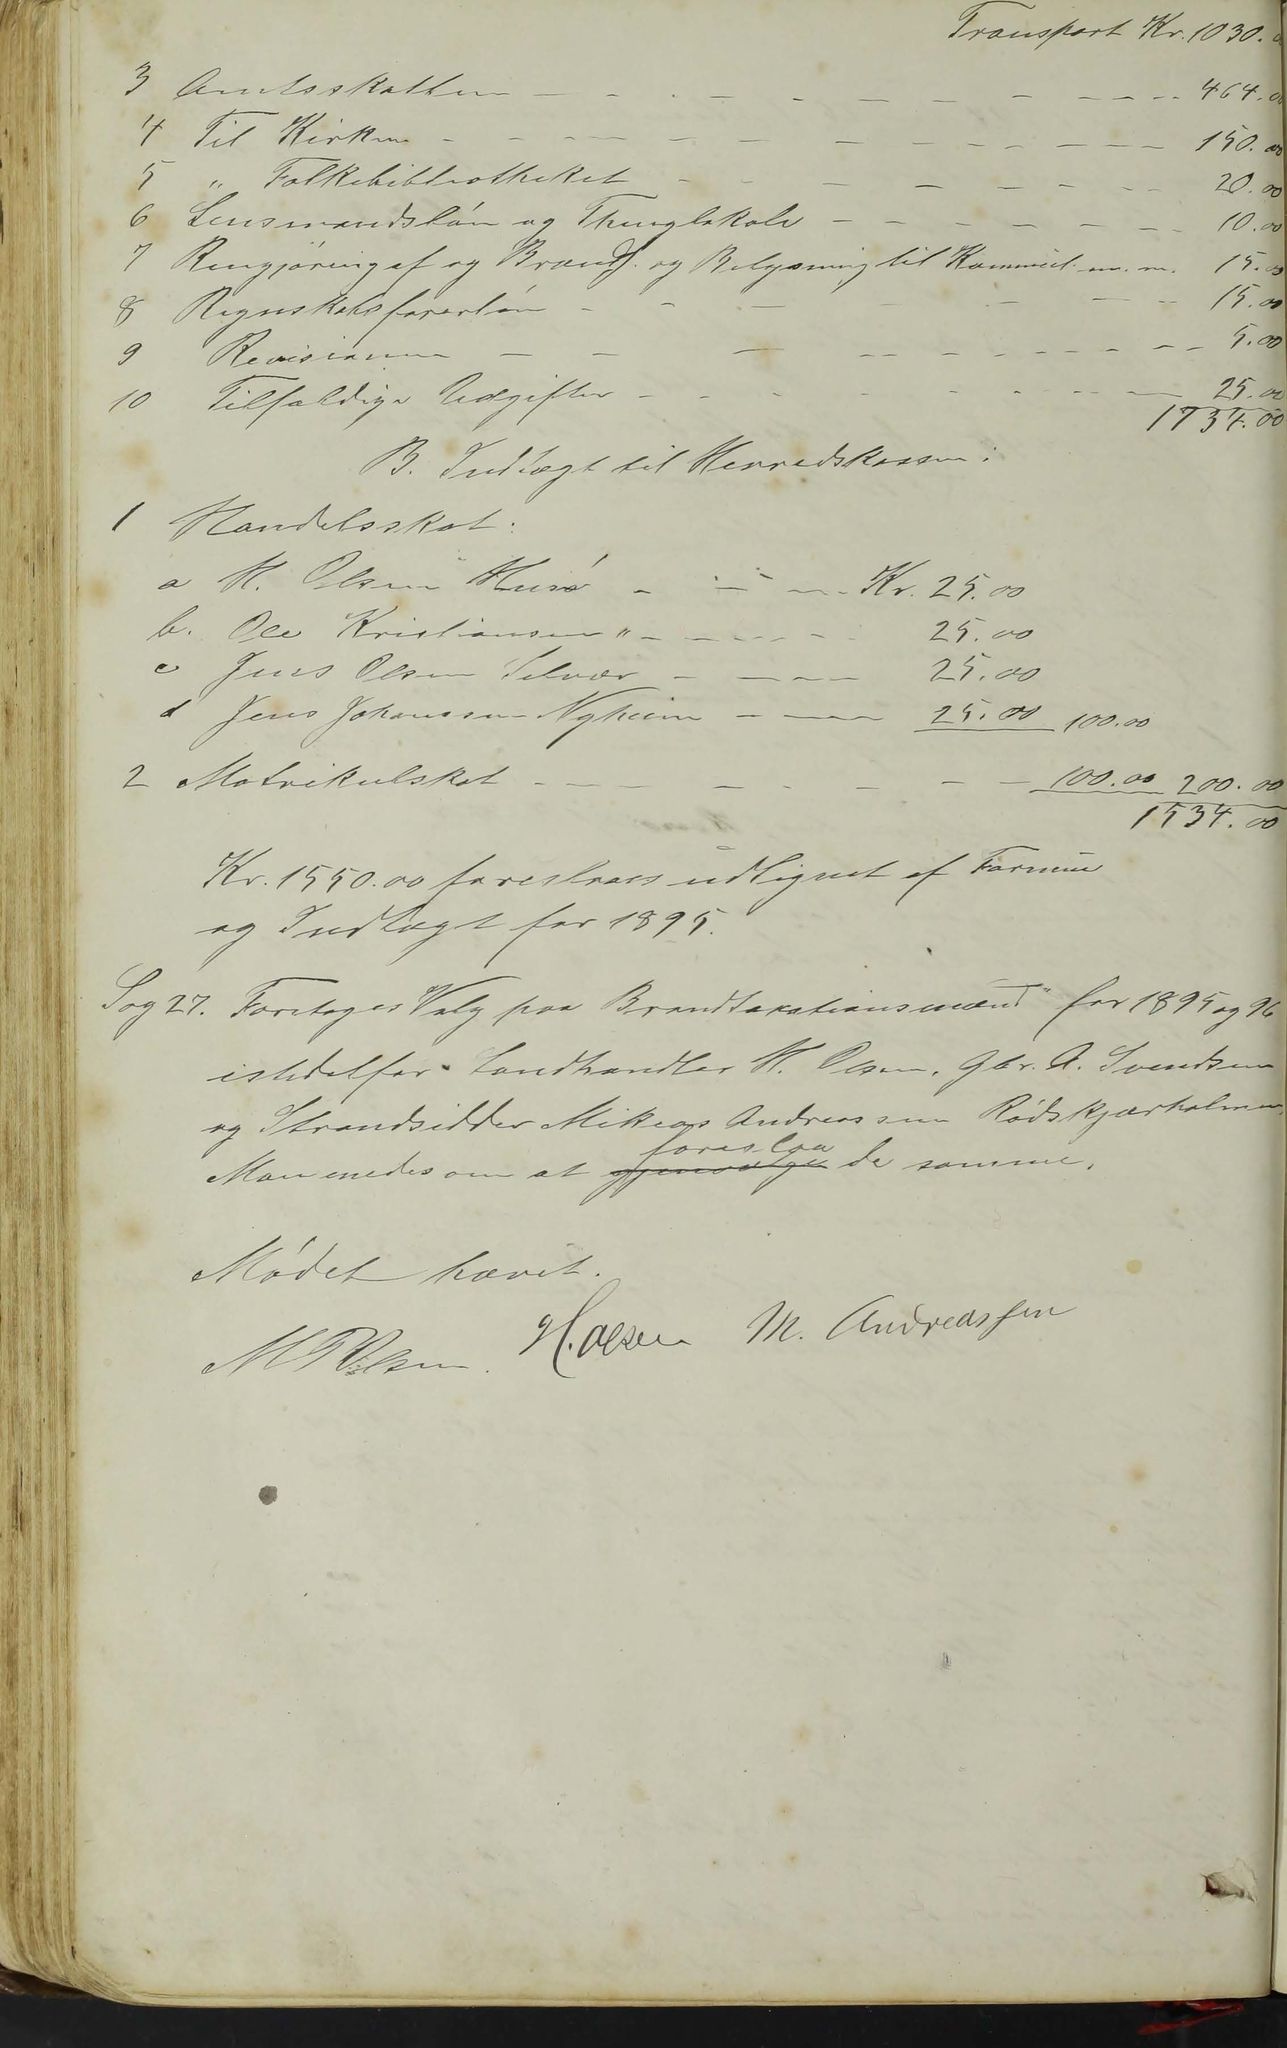 Transport Kr. 1030.
3 Amtsskatten - - - - - 464.00
4 Til Kirken - - - - - 150.00
5 " Folkebibliotheket - - - - - 20.00
6 Lensmandsløn og Thinglokale - - - - - 10.00
7 Rengjøring af og Brænds. og Belysning til Kommuel. m. m. 15.00
8 Regnskabsførerløn - - - - - 15.00
9 Revisionen - - - - - 5.00
10 Tilfældige Udgifter - - - - - 25.00
1734.00
B. Indtægt til Herredskassen:
1 Handelsskat:
a H. Olsen Husø - - - Kr. 25.00
b. Ole Kristiansen " - - - 25.00
c Jens Olsen Selvær - - - 25.00
d Jens Johanssen Nyheim - - - 25.00 100.00
2 Matrikulskat - - - - - 100.00 200.00
1534.00
Kr. 1550.00 foreslaaes udlignet af Formue
og Indtægt for 1895.
Sag 27. Foretoges Valg paa Brandtaxationsmænd for 1895 og 96
istedetfor Landhandler H. Olsen, Gbr. A. Svendsen
og Strandsidder Mikeas Andreassen Rødskjærholmen.
Man enedes om at gjenvælge foreslaa de samme.
Mødet hævet.
M Olsen. H. Olsen M. Andreassen